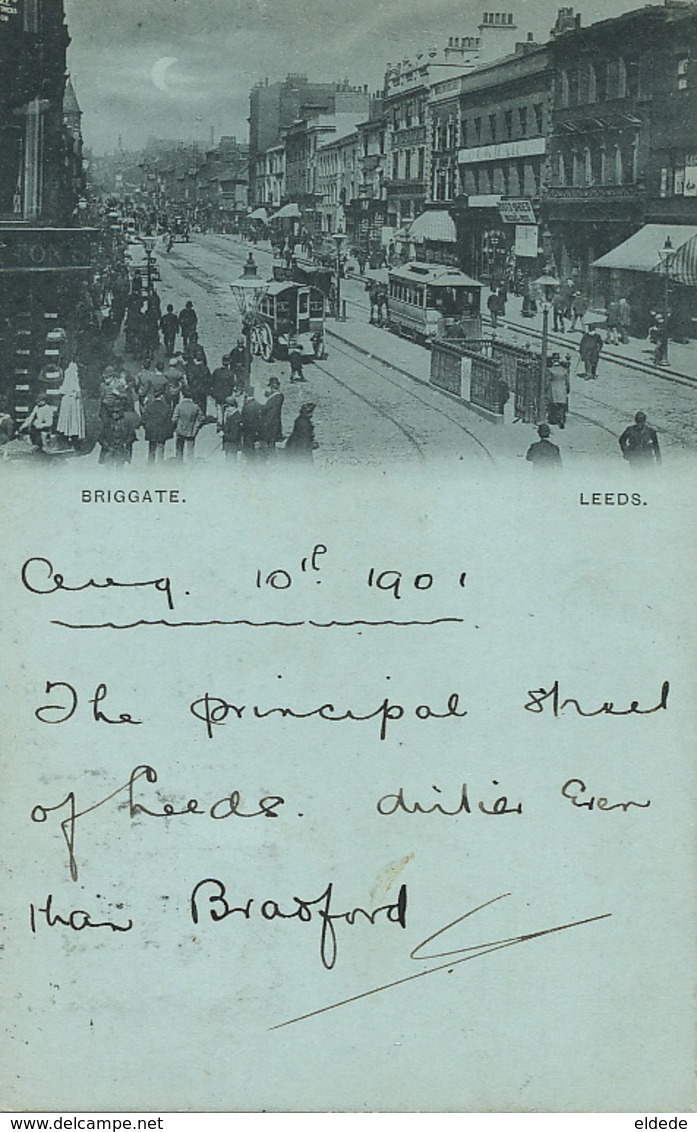 BRIGGATE. LEEDS.
Aug. 10th. 1901
The principal street
of Leeds. dirtier Even
than Bradford
delcampe.net eldede